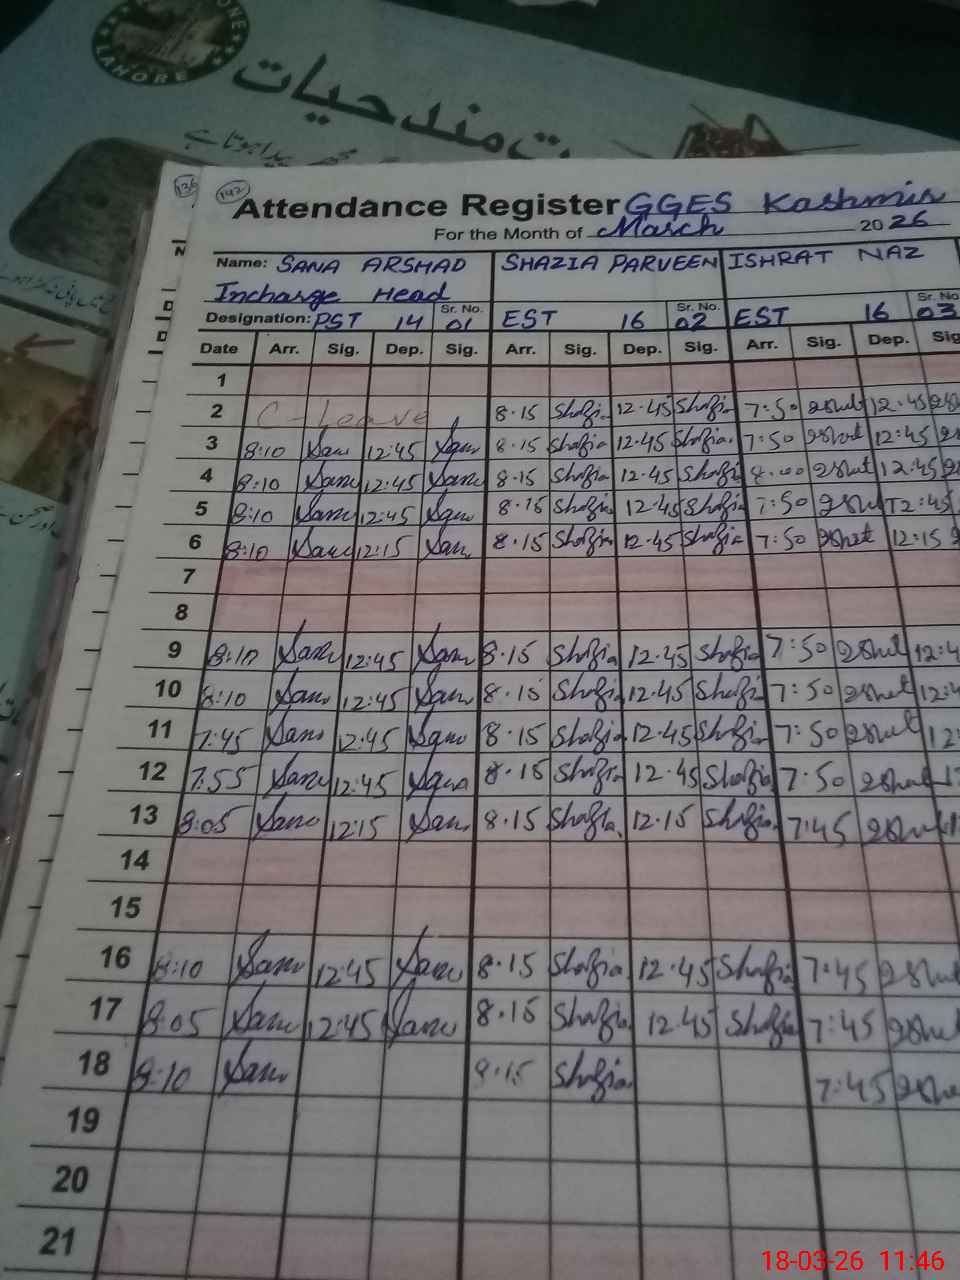 ONE
LAHORE
مند حیات
پیدا ہوتا ہے
136
142
Attendance Register GGES Kashmir
For the Month of March 2026
Name: SANA ARSHAD SHAZIA PARVEEN ISHRAT NAZ
Incharge Head
Designation: PST 14 Sr. No. 01 EST 16 Sr. No. 02 EST 16 Sr. No. 03
Date Arr. Sig. Dep. Sig. Arr. Sig. Dep. Sig. Arr. Sig. Dep. Sig
1
2 C-Leave 8.15 Shazia 12.45 Shazia 7:50 12.45
3 8:10 Sana 12:45 Sana 8.15 Shazia 12.45 Shazia 7:50 12:45
4 8:10 Sana 12:45 Sana 8.15 Shazia 12.45 Shazia 8.00 12:45
5 8:10 Sana 12:45 Sana 8.15 Shazia 12.45 Shazia 7:50 12:45
6 8:10 Sana 12:15 Sana 8.15 Shazia 12.45 Shazia 7:50 12:15
7
8
9 8:10 Sana 12:45 Sana 8.15 Shazia 12.45 Shazia 7:50 12:4
10 8:10 Sana 12:45 Sana 8.15 Shazia 12.45 Shazia 7:50 12:4
11 7:45 Sana 12:45 Sana 8.15 Shazia 12.45 Shazia 7:50 12
12 7:55 Sana 12:45 Sana 8.15 Shazia 12.45 Shazia 7:50
13 8:05 Sana 12:15 Sana 8.15 Shazia 12.15 Shazia 7:45
14
15
16 8:10 Sana 12:45 Sana 8.15 Shazia 12.45 Shazia 7:45
17 8:05 Sana 12:45 Sana 8.15 Shazia 12.45 Shazia 7:45
18 8:10 Sana 8.15 Shazia 7:45
19
20
21
18-03-26 11:46